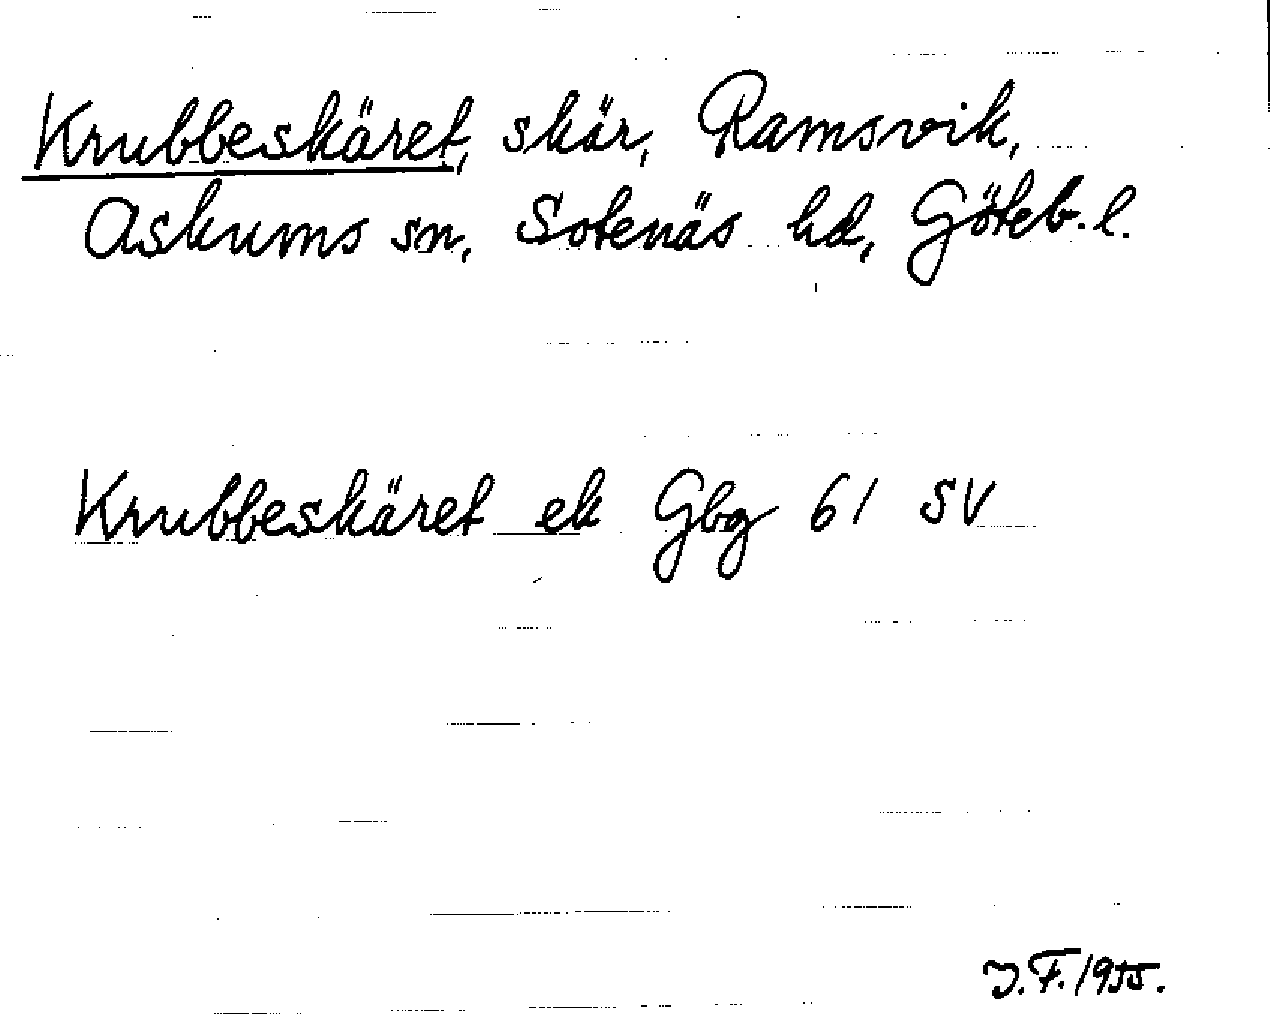 Krubbeskäret, skär, Ramsvik,
Askums sn, Sotenäs hd, Göteb. l.
Krubbeskäret ek Gbg 61 SV
J.F. 1955.